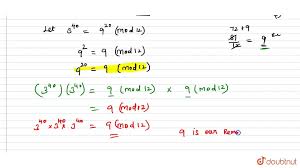 Let 3^40 = 9^20 (mod 12)
72 + 9
81/12 = 9
9^2 = 9 (mod 12)
9^20 = 9 (mod 12)
(3^40)(3^40) = 9 (mod 12) × 9 (mod 12)
= 9 (mod 12)
3^40 × 3^40 × 3^40 = 9 (mod 12)
9 is our Rem
doubtnut